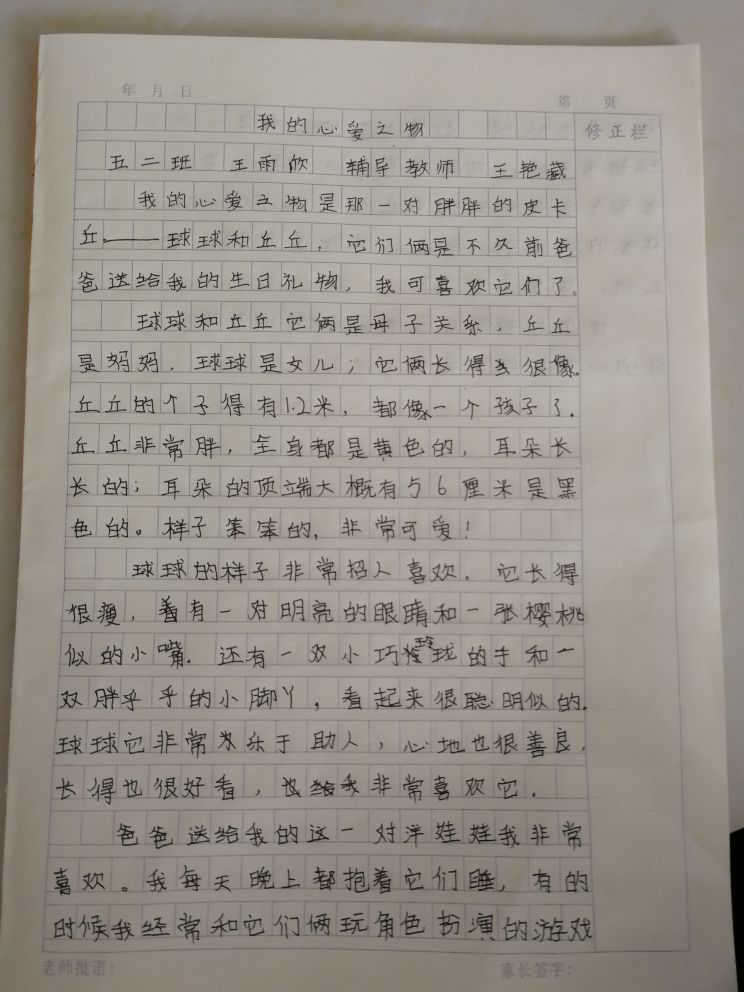 年 月 日
第 页
我的心爱之物
修正栏
五二班 王雨欣 辅导教师 王艳藏
我的心爱之物是那一对胖胖的皮卡
丘——球球和丘丘，它们俩是不久前爸
爸送给我的生日礼物，我可喜欢它们了。
球球和丘丘它俩是母子关系，丘丘
是妈妈，球球是女儿；它俩长得很像。
丘丘的个子得有1.2米，都像一个孩子了。
丘丘非常胖，全身都是黄色的，耳朵长
长的；耳朵的顶端大概有56厘米是黑
色的。样子笨笨的，非常可爱！
球球的样子非常招人喜欢。它长得
很瘦，有一对明亮的眼睛和一张樱桃
似的小嘴。还有一双小巧玲珑的手和一
双胖乎乎的小脚丫，看起来很聪明似的。
球球它非常乐于助人，心地也很善良，
长得也很好看，我非常喜欢它。
爸爸送给我的这一对洋娃娃我非常
喜欢。我每天晚上都抱着它们睡，有的
时候我经常和它们俩玩角色扮演的游戏
老师批语：
家长签字：